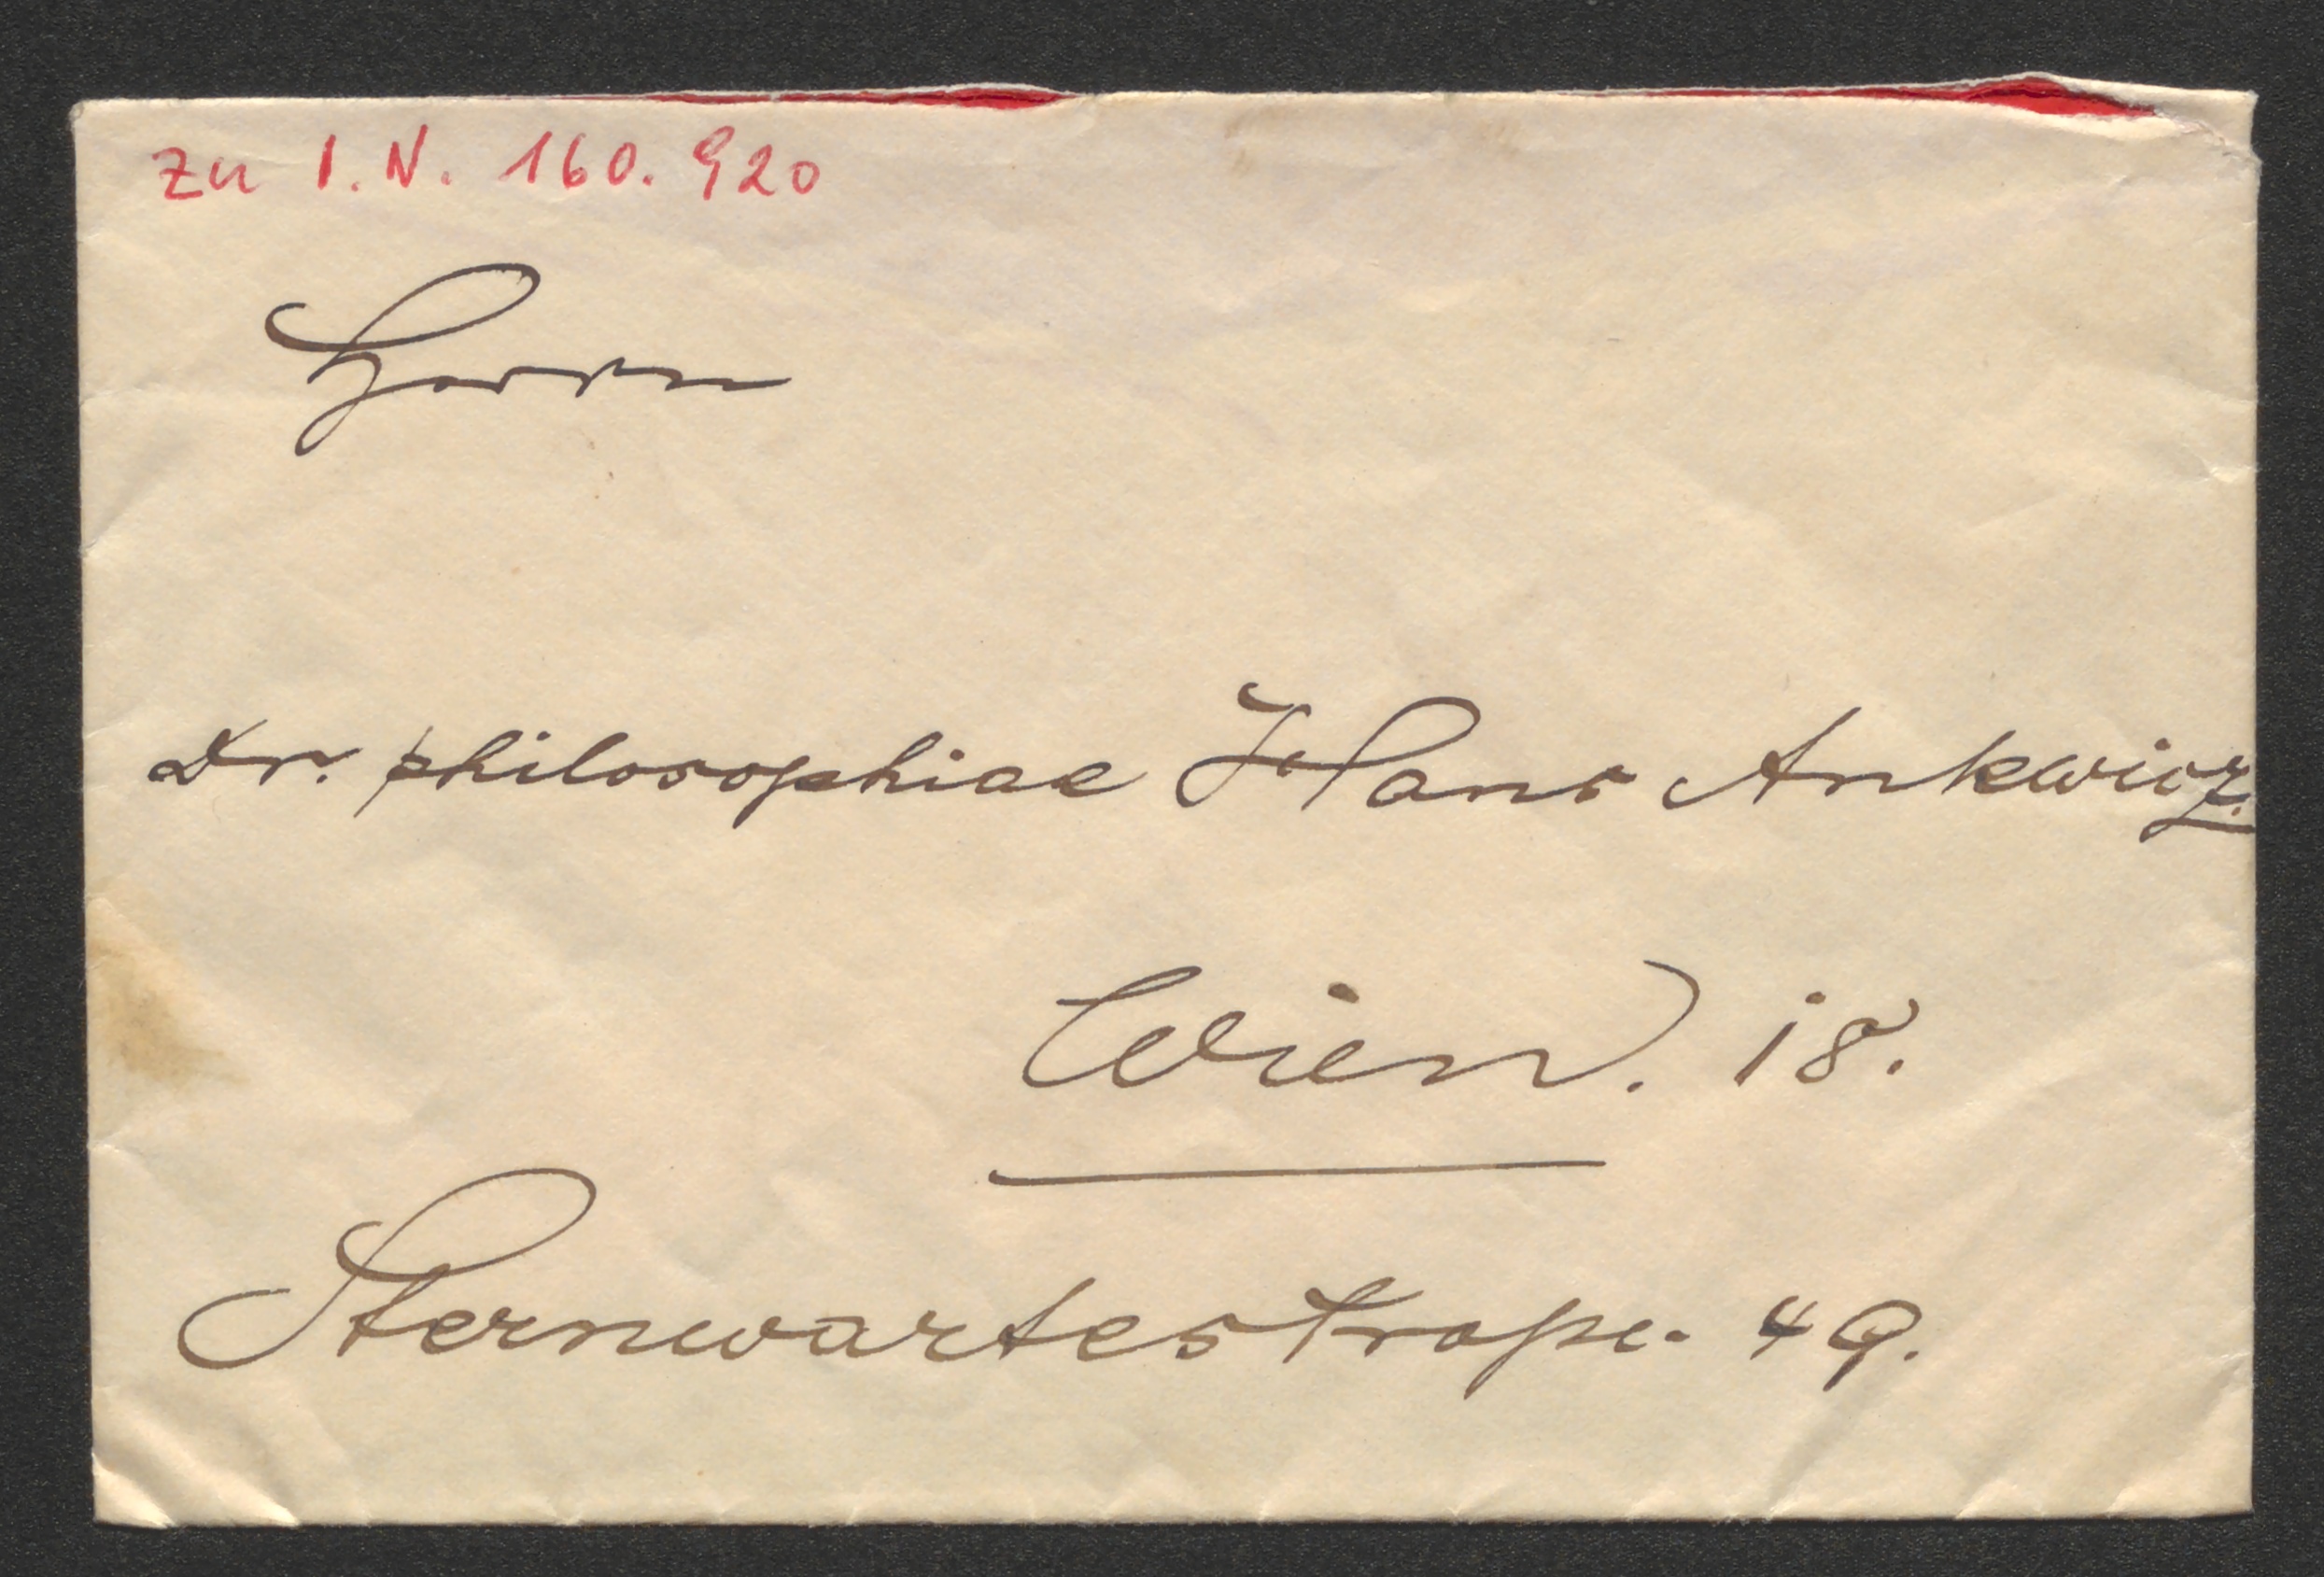 zu I.N. 160.920
Herrn
Dr. philosophiae Hans Ankwicz.
Wien. 18.
Sternwartestraße. 49.